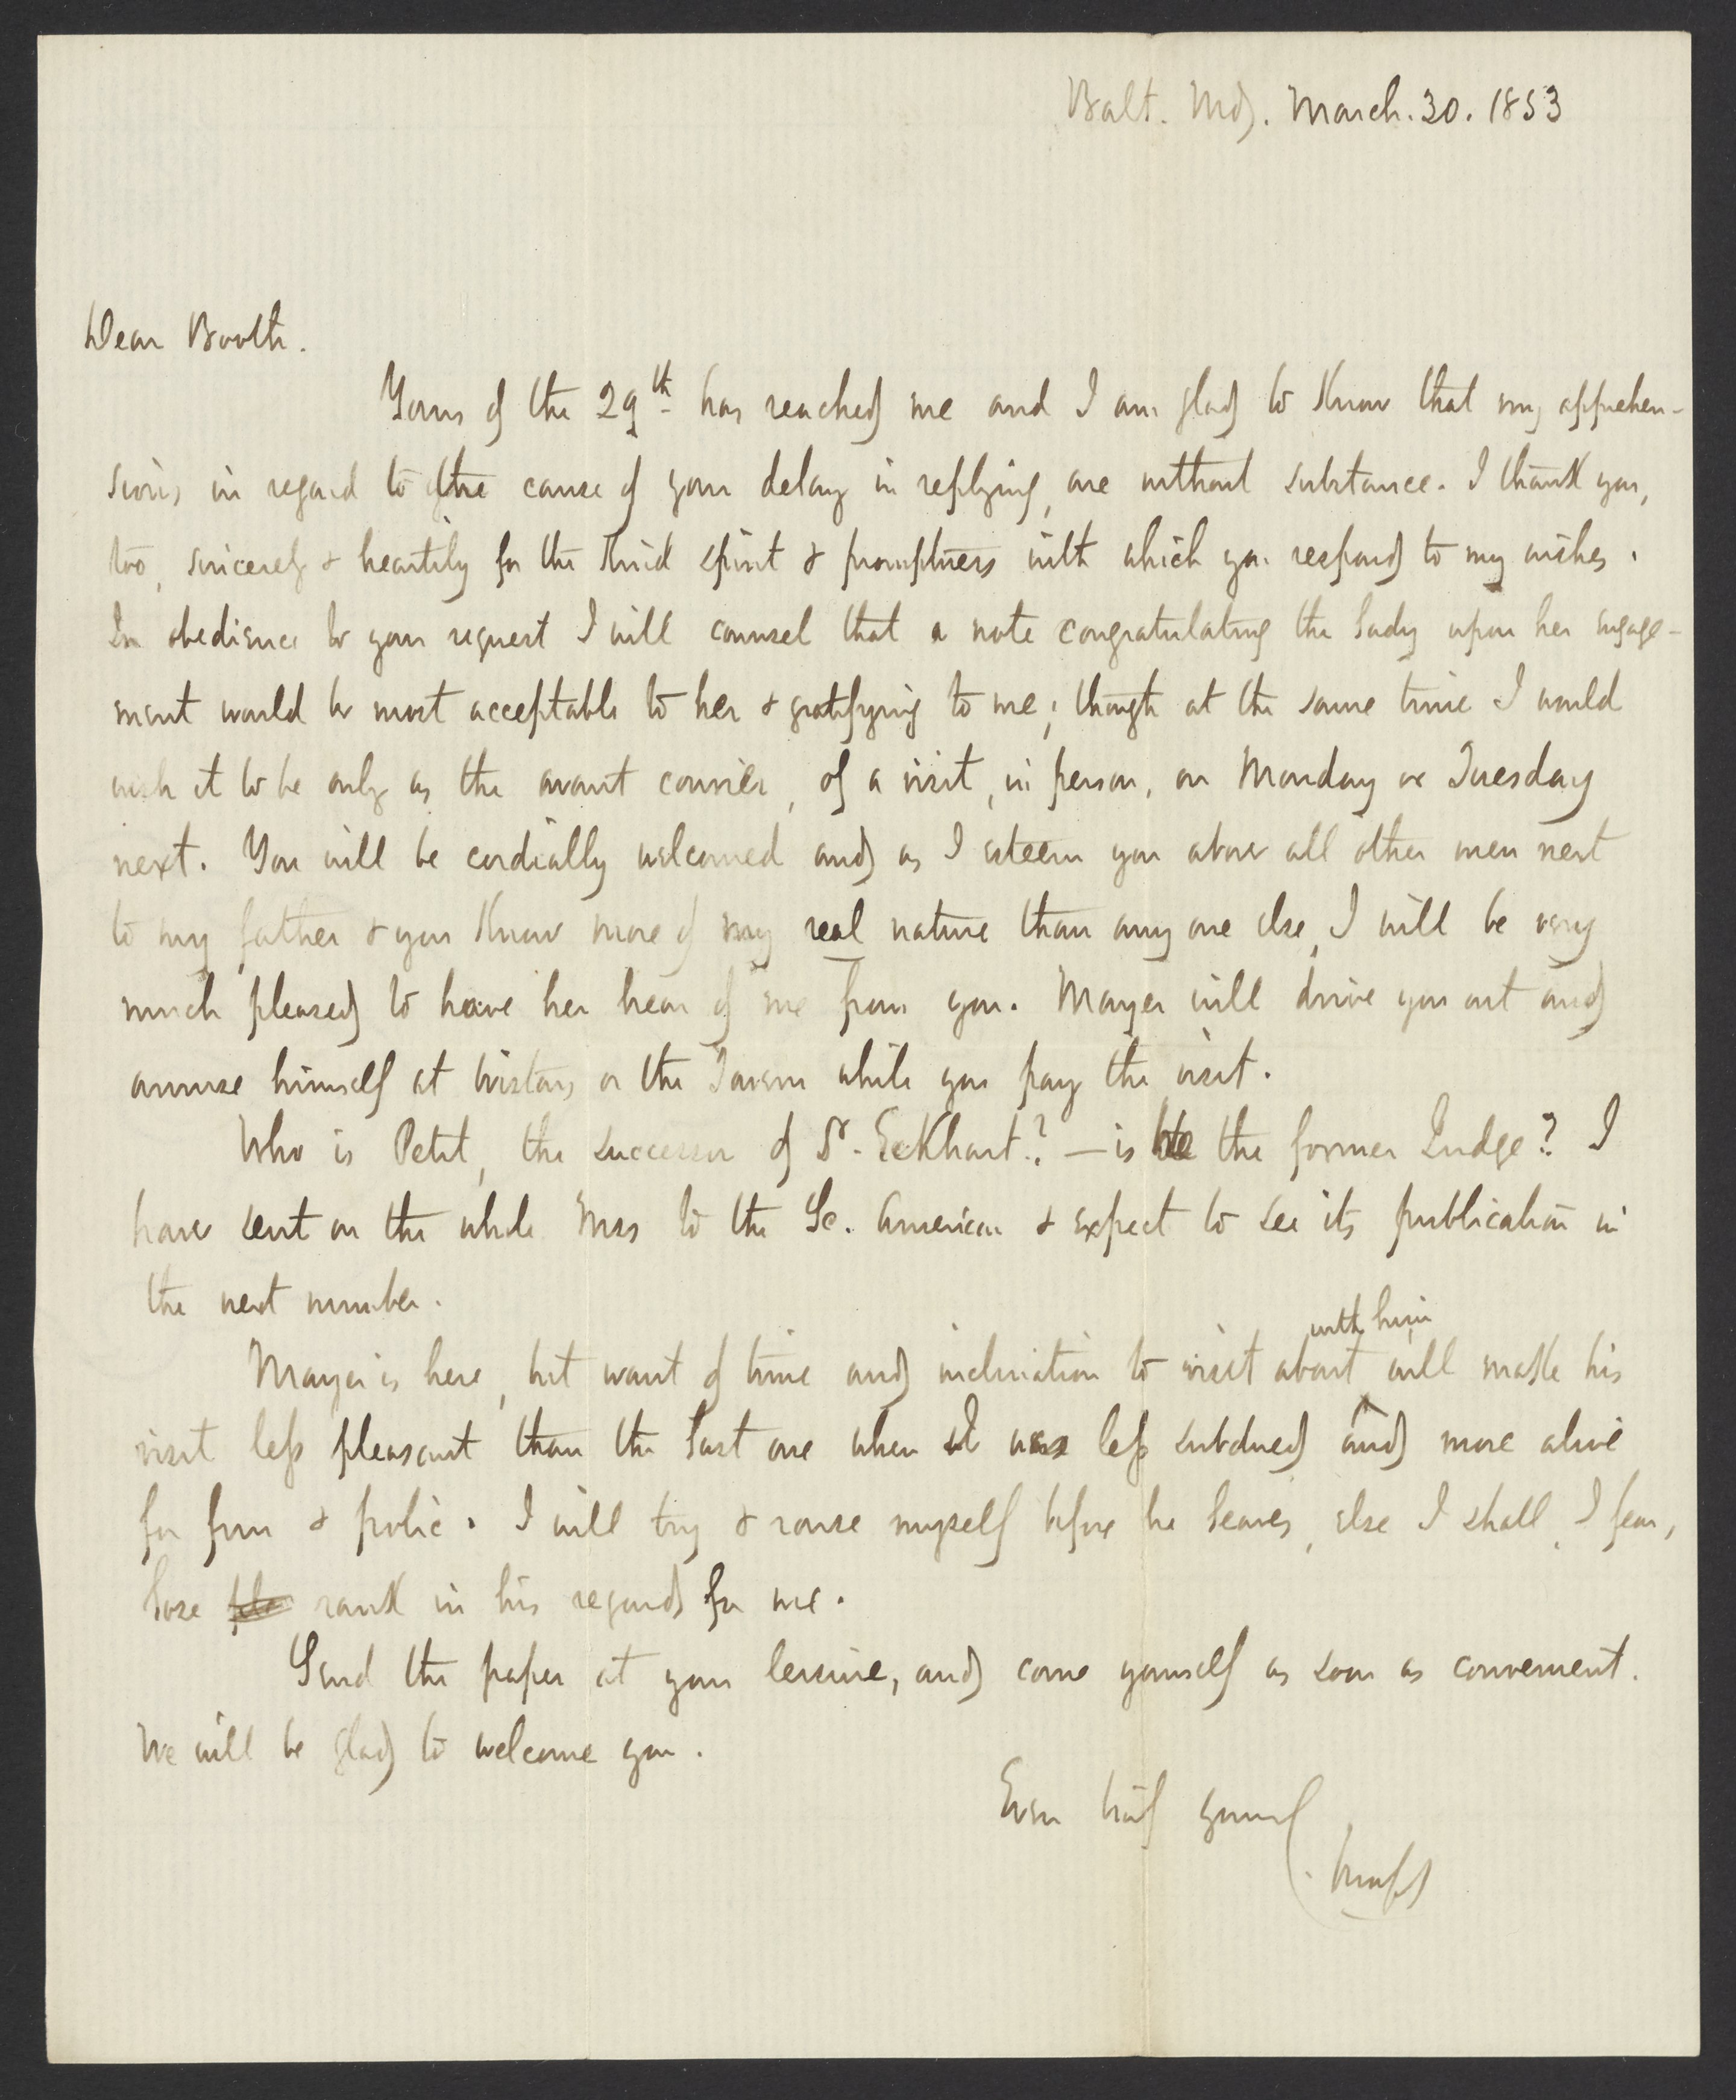 Balt. Md. March. 30. 1853
Dear Booth.
Yours of the 29th has reached me and I am glad to know that my apprehen-
sions in regard to the cause of your delay in replying, are without substance. I thank you,
too, sincerely & heartily for the kind spirit & promptness with which you respond to my wishes.
In obedience to your request I will counsel that a note congratulating the lady upon her engage-
ment would be most acceptable to her & gratifying to me; though at the same time I would
wish it to be only as the avant courier, of a visit, in person, on Monday or Tuesday
next. You will be cordially welcomed and as I esteem you above all other men next
to my father & you know more of my real nature than any one else, I will be very
much pleased to have her hear of me from you. Mayer will drive you out and
amuse himself at or the Tavern while you pay the visit.
Who is Petit, the successor of Dr. Eckhart? — is he the former Judge? I
have sent on the whole Mss to the Sc. American & expect to see its publication in
the next number.
Mayer is here, but want of time and inclination to visit about with him will make his
visit less pleasant than the last one when I was less subdued and more alive
for fun & frolic. I will try & rouse myself before he leaves, else I shall, I fear,
lose rank in his regards for me.
Send the paper at your leisure, and come yourself as soon as convenient.
We will be glad to welcome you.
Ever truly yours